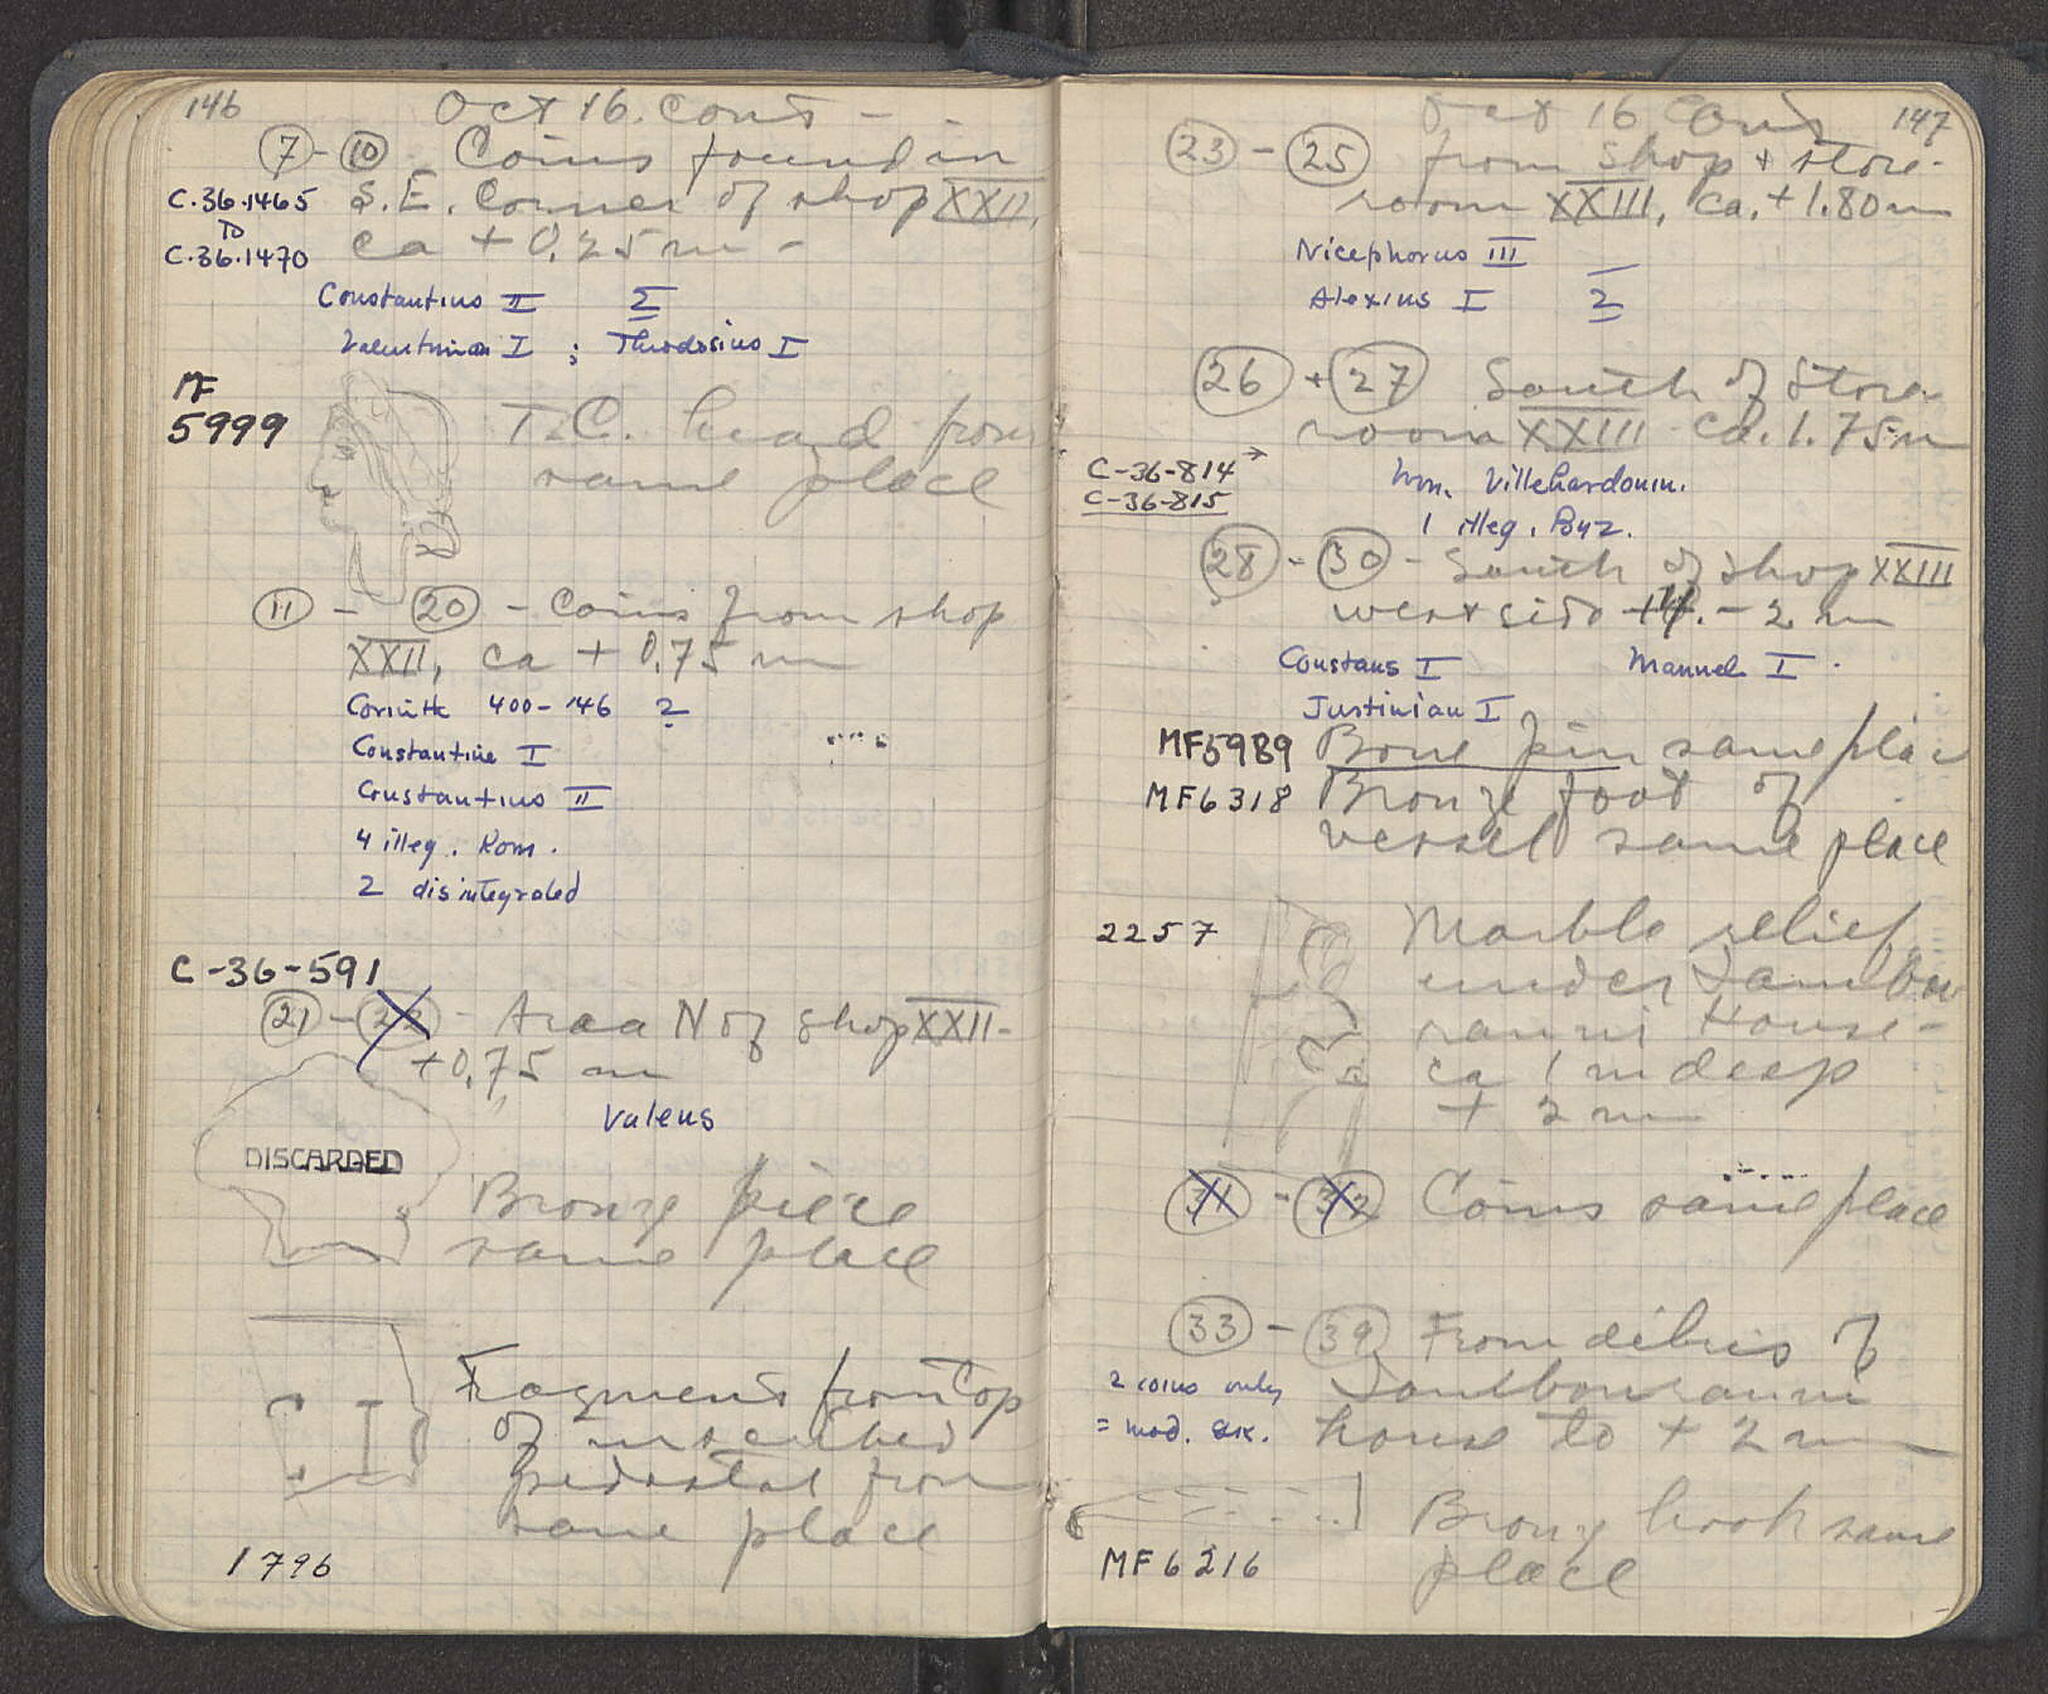 146
Oct 16. Cont -
7 - 10 Coins found in
C.36.1465 S.E. Corner of shop XXII,
TO
C.36.1470 ca + 0.25 m -
Constantius II 2
Valentinian I ; Theodosius I
MF
5999 T.C. head from
same place
11 - 20 - Coins from shop
XXII, ca + 0.75 m
Corinth 400-146 2
Constantine I
Constantius II
4 illeg. Rom.
2 disintegrated
C-36-591
21 - 22 - Area N of shop XXII -
+ 0.75 m
Valens
DISCARDED
Bronze piece
same place
Fragment from top
of inscribed
pedestal from
same place
1796
Oct 16 Cont 147
23 - 25 from shop + store-
room XXIII, ca. + 1.80 m
Nicephorus III
Alexius I 2
26 + 27 South of Store
room XXIII ca. 1.75 m
C-36-814 → Wm. Villehardouin.
C-36-815
1 illeg. Byz.
28 - 30 - South of shop XXIII
west side - 2 m
Constans I Manuel I.
Justinian I
MF5989 Bone pin same place
MF6318 Bronze foot of
vessel same place
2257 Marble relief
under
House -
ca 1 m deep
+ 2 m
31 - 32 Coins same place
33 - 39 From débris of
2 coins only
= mod. Gk. house to + 2 m
Bronze hook same
MF 6216 place